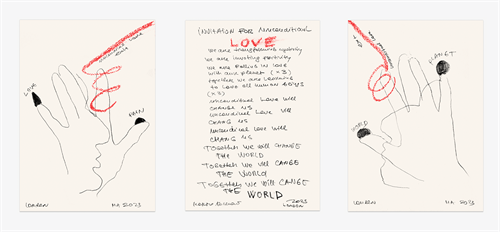 LOVE
PAIN
LONDON
MA 2023
INVITATION FOR UNCONDITIONAL
LOVE
WE ARE TRANSFORMING
WE ARE INVITING
WE ARE FALLING IN LOVE
WITH OUR PLANET (x3)
TOGETHER WE ARE LEARNING
TO LOVE ALL HUMAN
(x3)
UNCONDITIONAL LOVE WILL
CHANGE US
UNCONDITIONAL LOVE WILL
CHANG US
UNCONDITIONAL LOVE WILL
CHANG US
TOGETHER WE WILL CHANGE
THE WORLD
TOGETHER WE WILL CANGE
THE WORLD
TOGETHER WE WILL CANGE
THE WORLD
2023
LONDON
PLANET
WORLD
LONDON
MA 2023